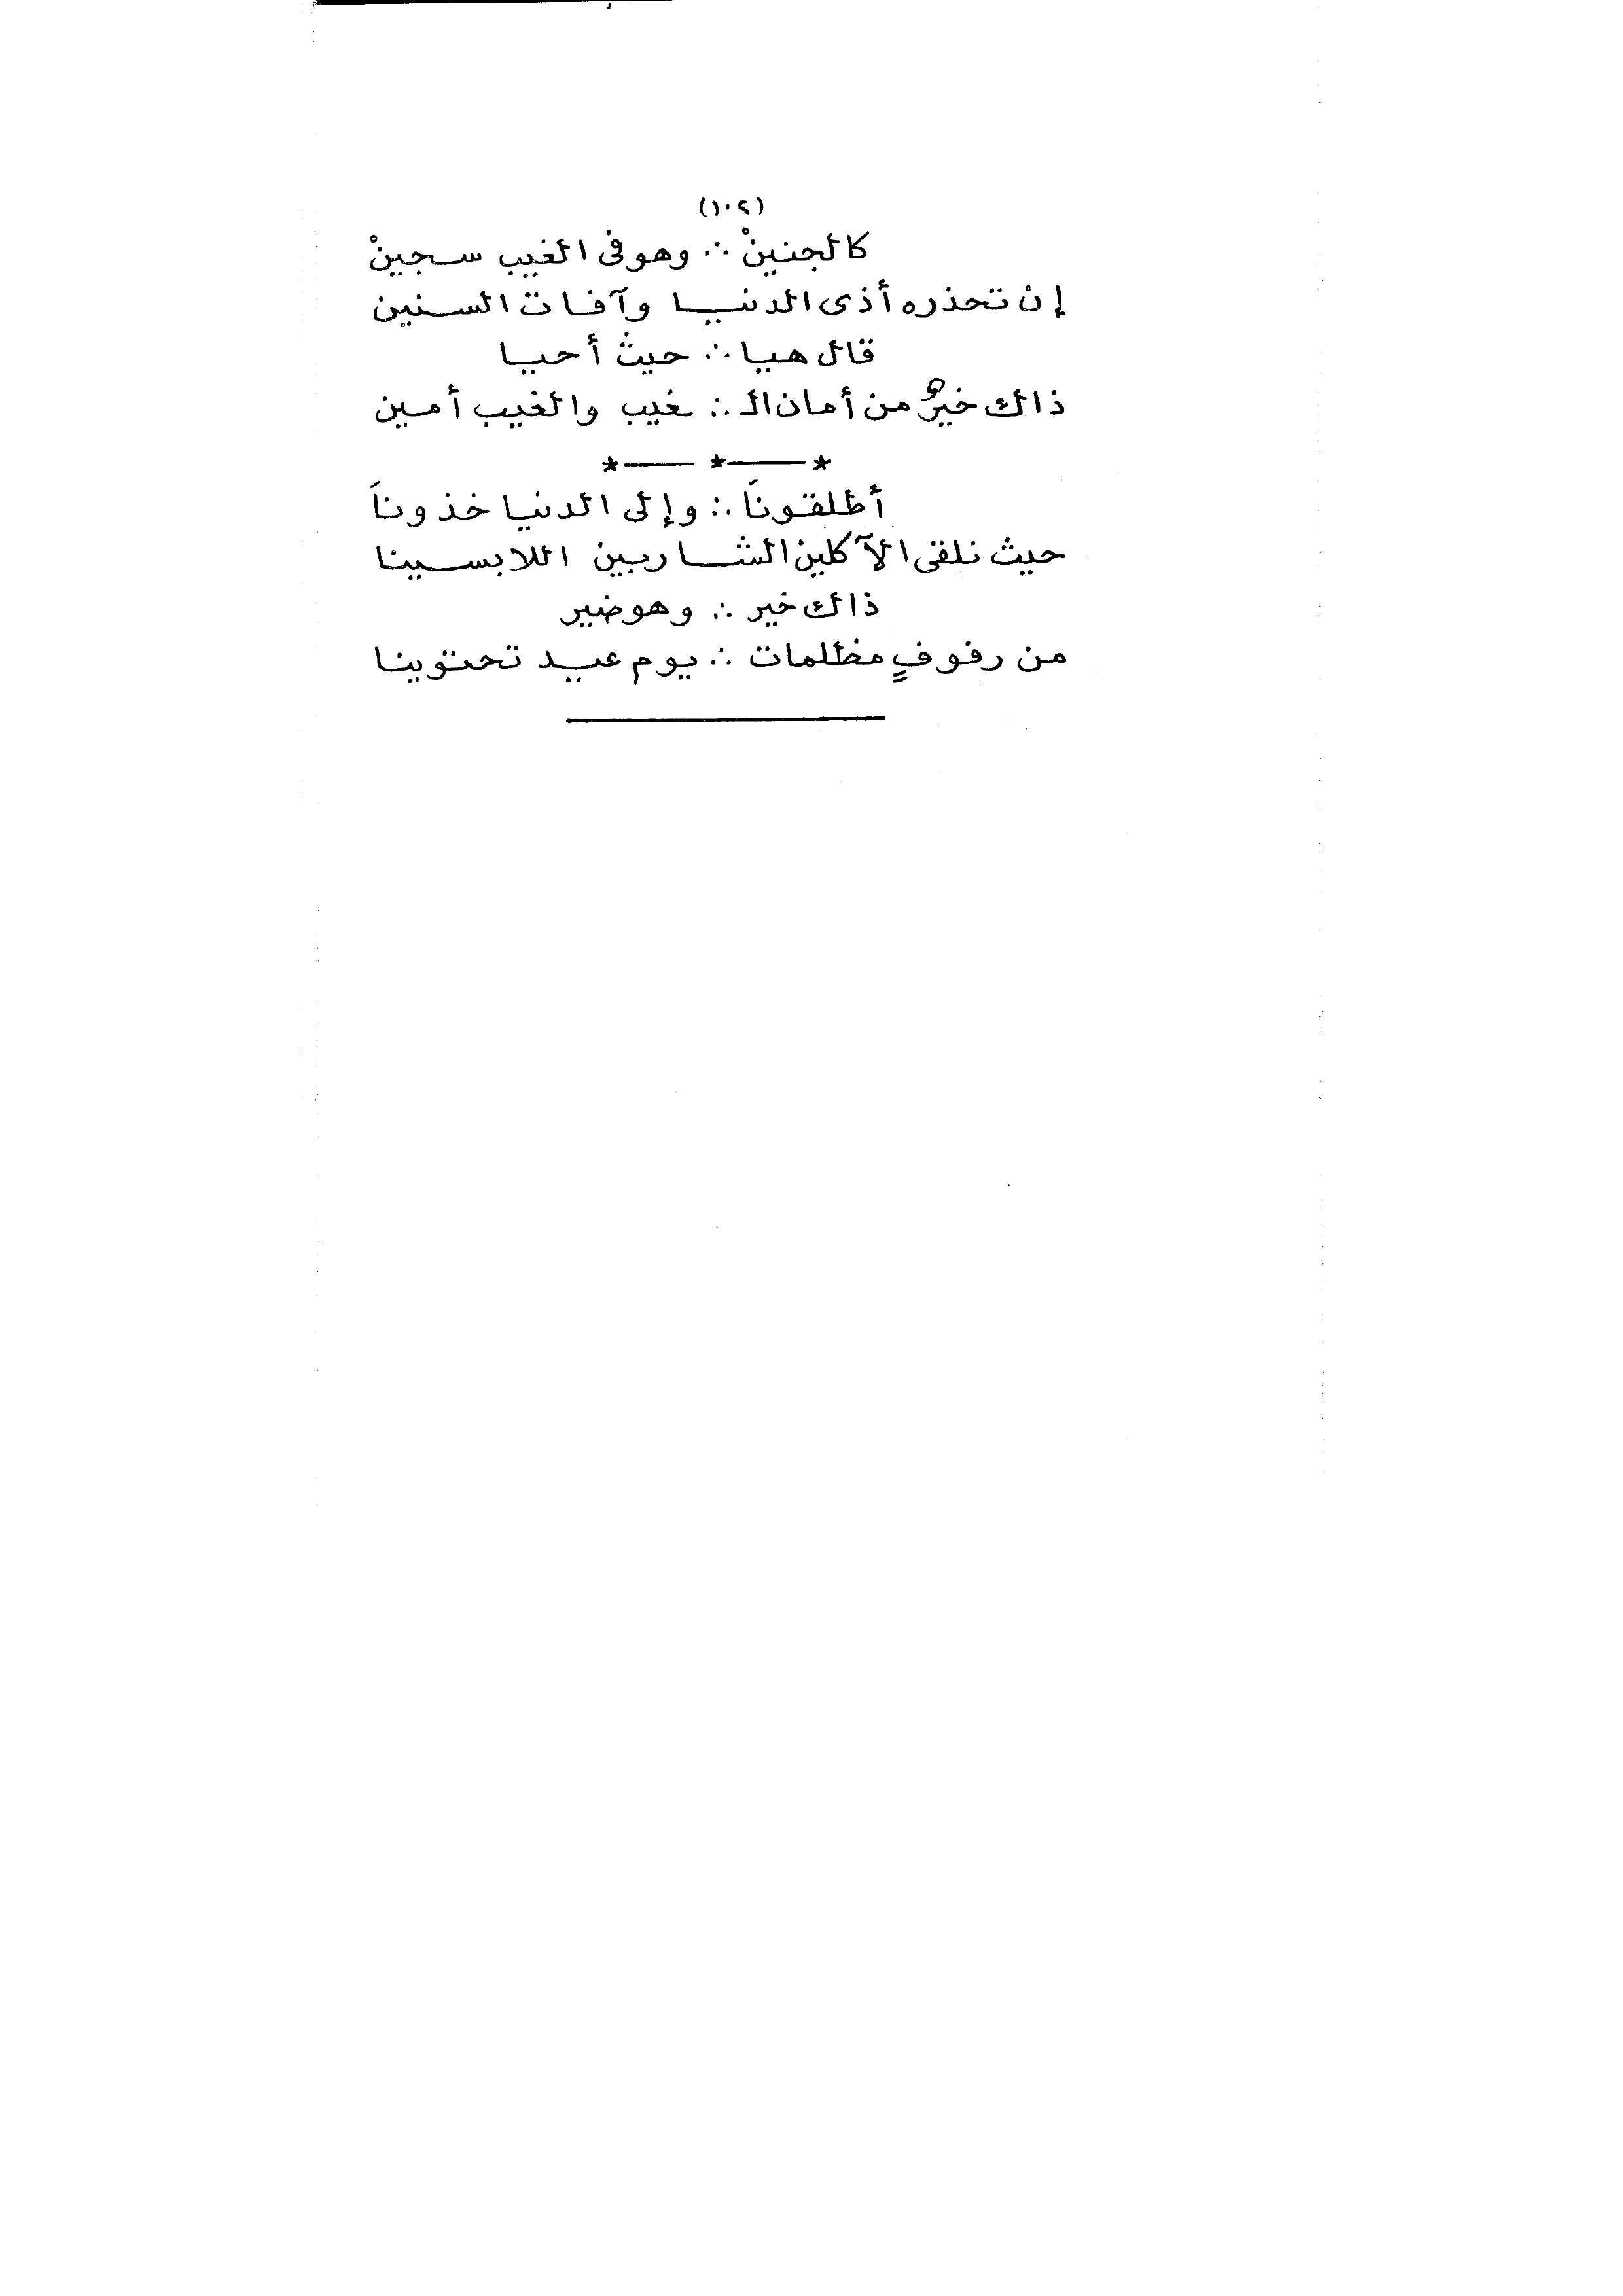 (١٠٢)
كالجنينْ ∴ وهو فى الغيب سجينْ
إن تحذره أذى الدنيا وآفات السنين
قال هيا ∴ حيث أحيا
ذاك خيرٌ من أمان الـ ∴ ـغيب والغيب أمين
* —— * —— *
أطلقونَا ∴ وإلى الدنيا خذونَا
حيث نلقى الآكلين الشاربين اللابسينا
ذاك خير ∴ وهو ضير
من رفوفٍ مظلمات ∴ يوم عيد تحتوينا